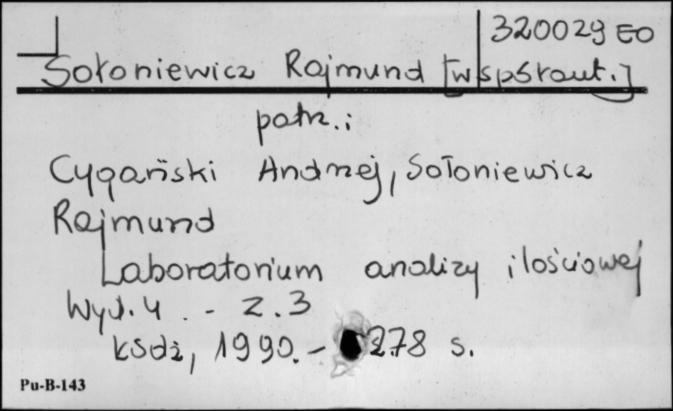 320029 EO
Sołoniewicz Rajmund [współaut.]
patrz.:
Cygański Andrzej, Sołoniewicz
Rajmund
Laboratorium analizy ilościowej
Wyd. 4 . - Z. 3
Łódź, 1990. - 278 s.
Pu-B-143